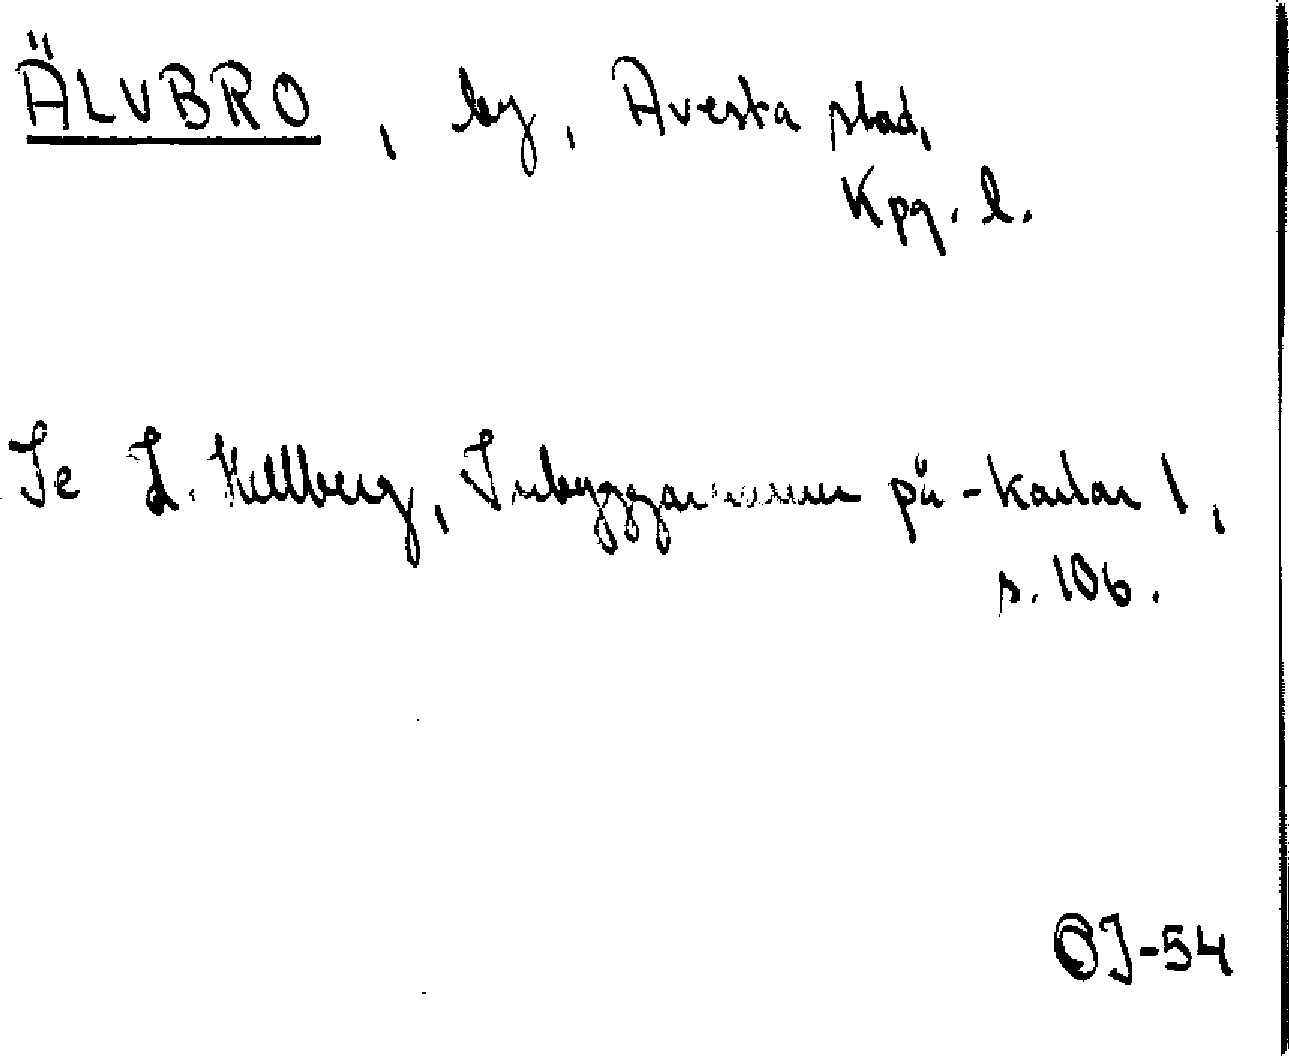 ÄLVBRO, by, Avesta stad,
Kpg. l.
Se L. Hellberg, Inbyggarnamn på -karlar 1,
s. 106.
OJ-54